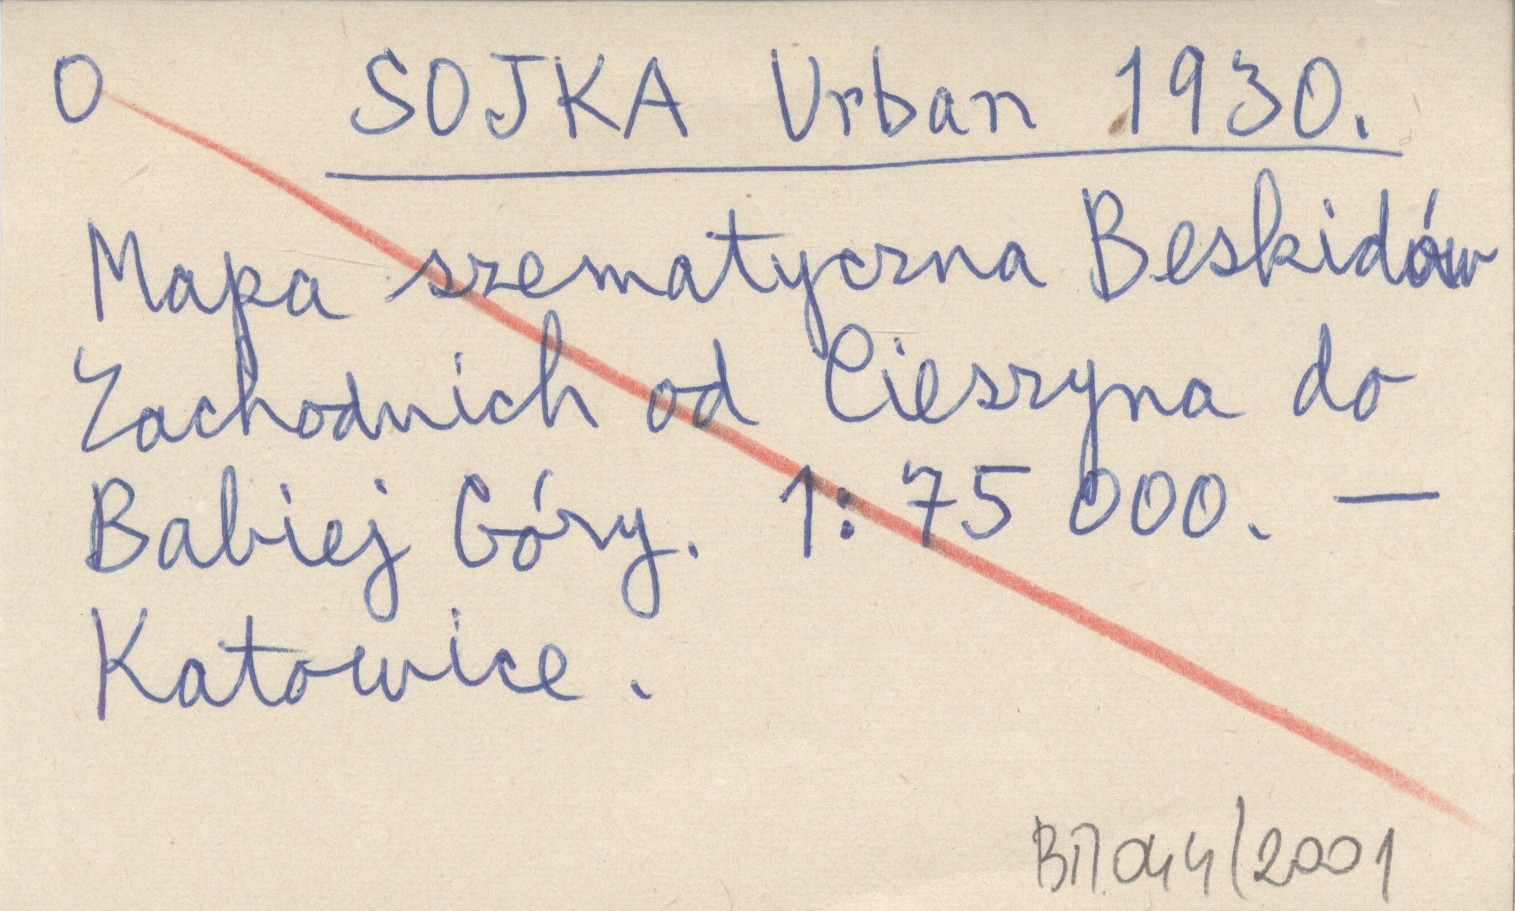 O SOJKA Urban 1930.
Mapa szematyczna Beskidów
Zachodnich od Cieszyna do
Babiej Góry. 1: 75 000. —
Katowice.
BM.044/2001